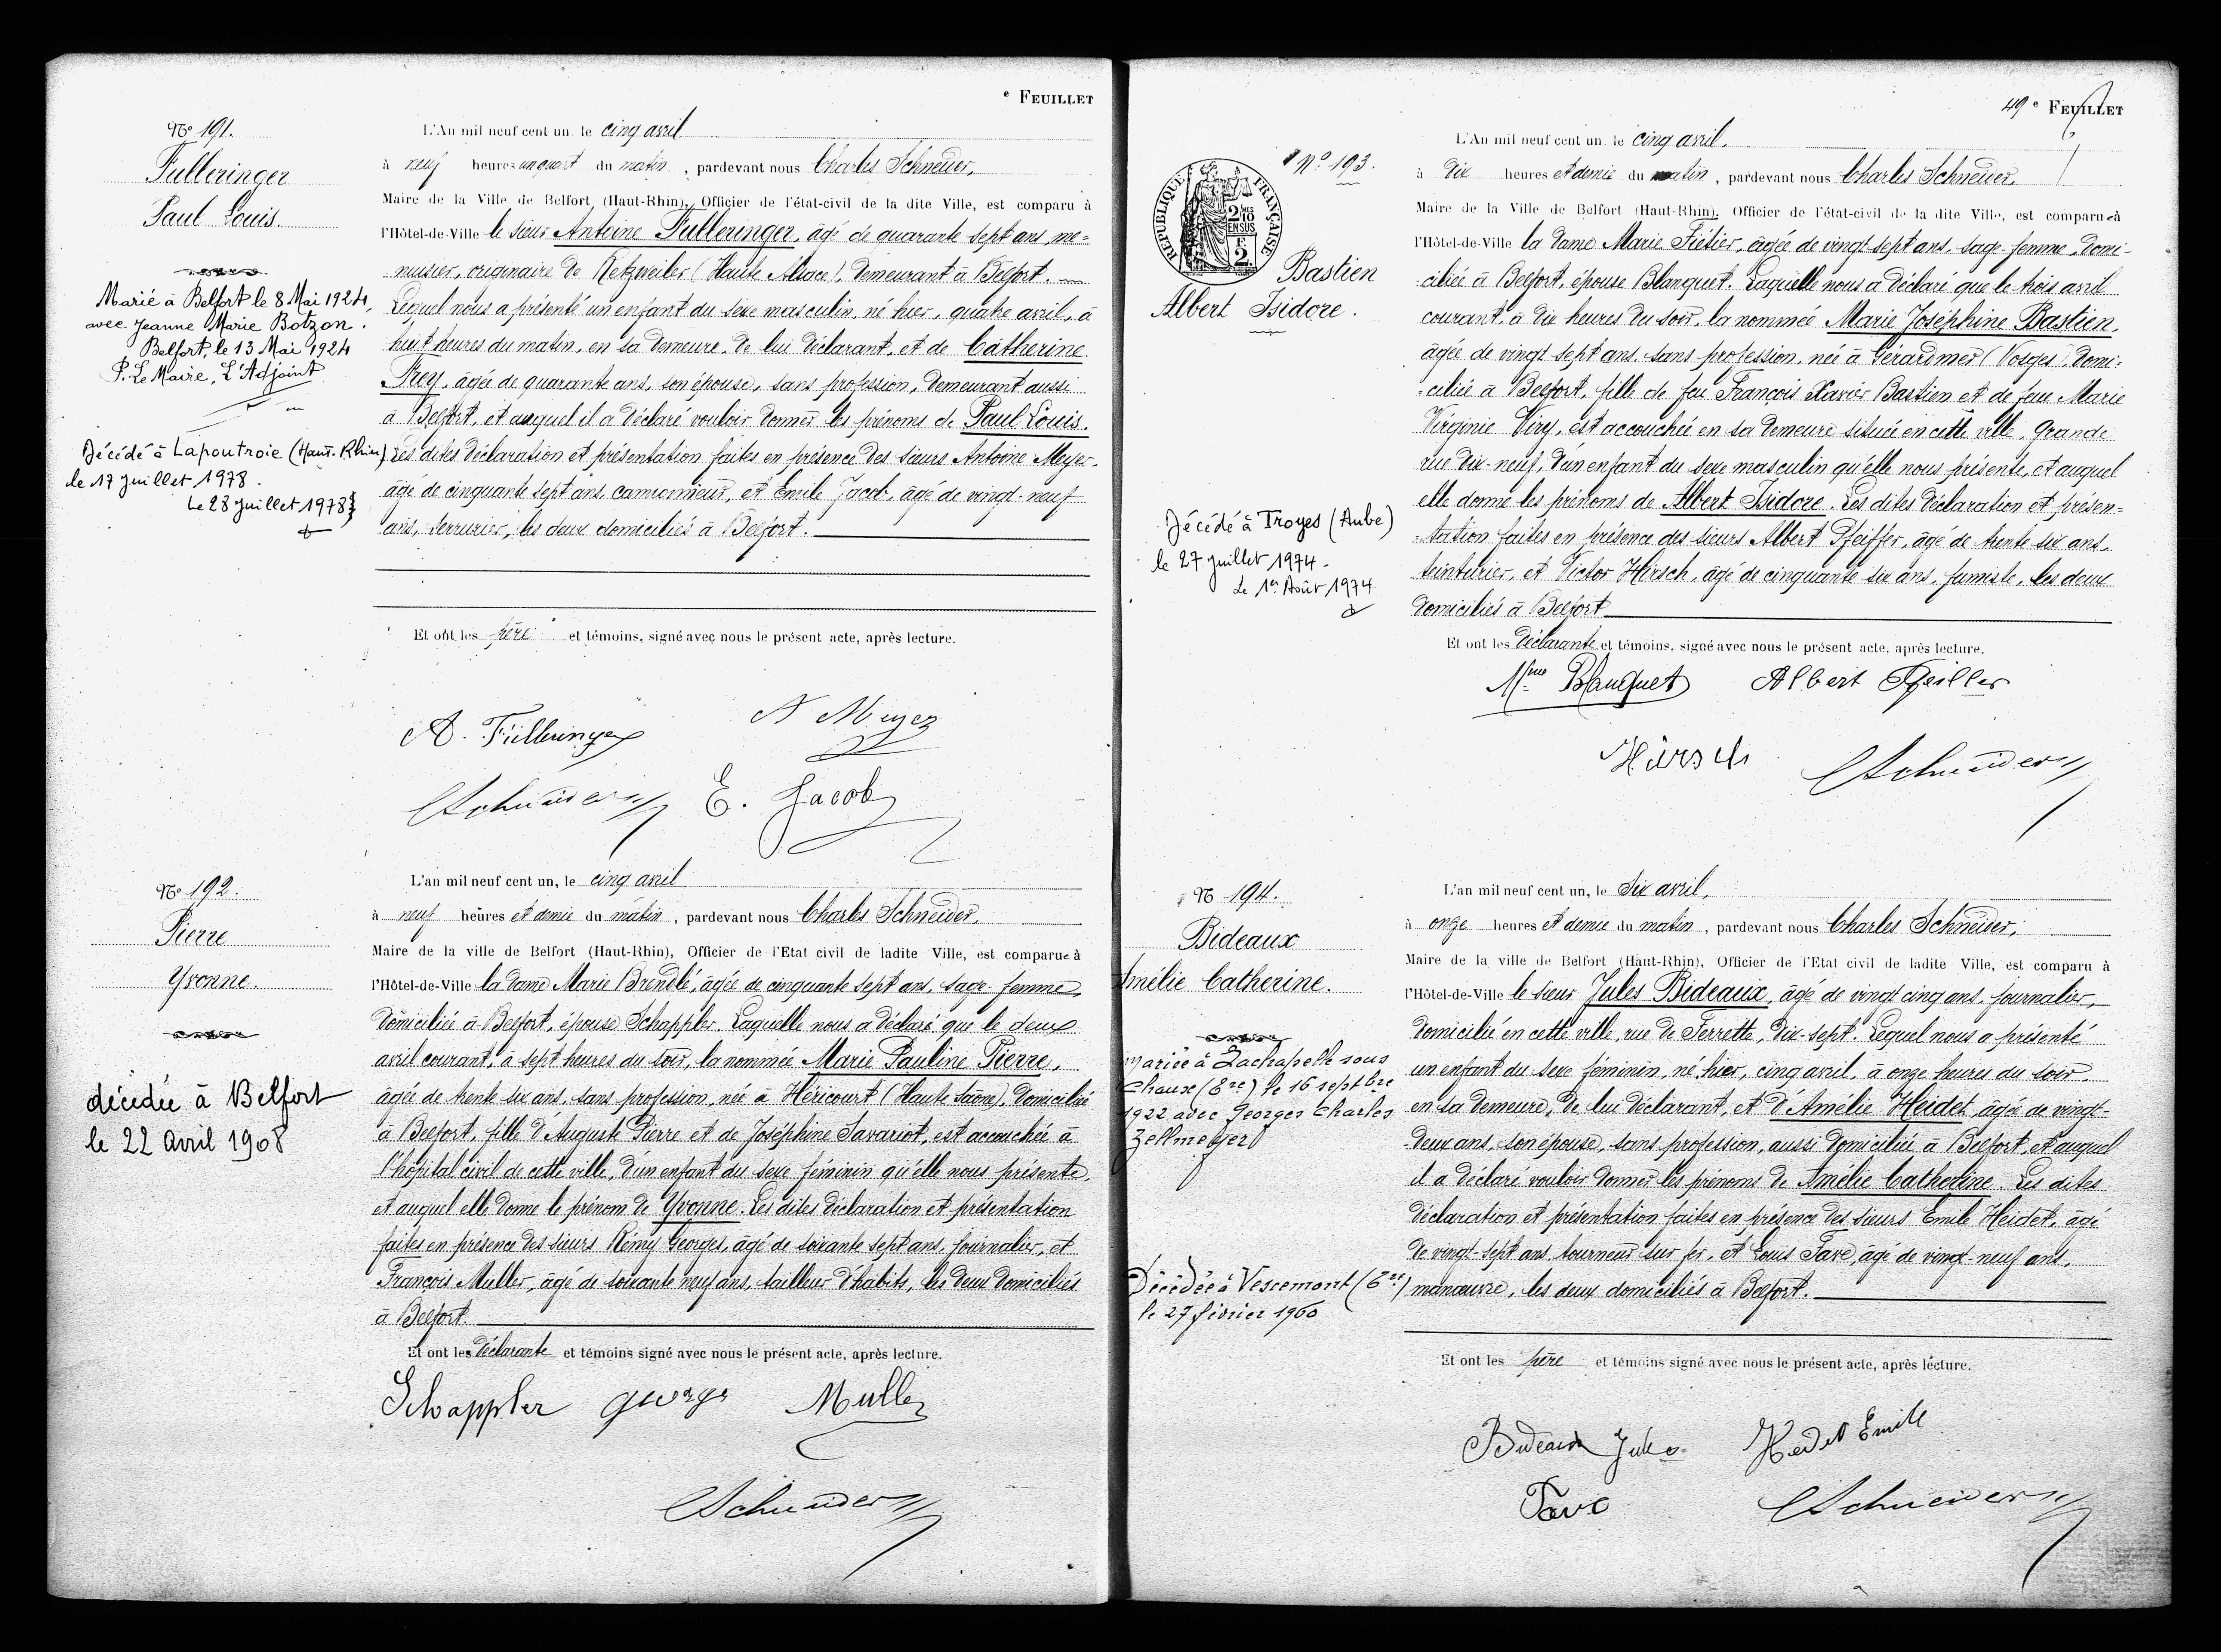 e FEUILLET
No 191.
Fulleringer
Paul Louis
Marié à Belfort le 8 Mai 1924,
avec Jeanne Marie Botzon.
Belfort, le 13 Mai 1924
P. Le Maire, L'Adjoint
Décédé à Lapoutroie (Haut-Rhin)
le 17 juillet 1978.
Le 28 juillet 1978
L'An mil neuf cent un le cinq avril
à neuf heures un quart du matin, pardevant nous Charles Schneider,
Maire de la Ville de Belfort (Haut-Rhin), Officier de l'état-civil de la dite Ville, est comparu à
l'Hôtel-de-Ville le sieur Antoine Fulleringer, âgé de quarante sept ans, me=
nuisier, originaire de Retzwiler (Haute Alsace), demeurant à Belfort.
Lequel nous a présenté un enfant du sexe masculin, né hier, quatre avril, à
huit heures du matin, en sa demeure, de lui déclarant, et de Catherine
Frey, âgée de quarante ans, son épouse, sans profession, demeurant aussi
à Belfort, et auquel il a déclaré vouloir donner les prénoms de Paul Louis.
Les dites déclaration et présentation faites en présence des sieurs Antoine Meyer,
âgé de cinquante sept ans, camionneur, et Emile Jacob, âgé de vingt-neuf
ans, serrurier, les deux domiciliés à Belfort.
Et ont les père et témoins, signé avec nous le présent acte, après lecture.
A. Fülleringer
A Meyer
Schneider
E. Jacob
No 192.
Pierre
Yvonne.
décédée à Belfort
le 22 Avril 1908
L'an mil neuf cent un, le cinq avril
à neuf heures et demie du matin, pardevant nous Charles Schneider,
Maire de la ville de Belfort (Haut-Rhin), Officier de l'Etat civil de ladite Ville, est comparue à
l'Hôtel-de-Ville la dame Marie Brendlé, âgée de cinquante sept ans, sage-femme,
domiciliée à Belfort, épouse Schappler. Laquelle nous a déclaré que le deux
avril courant, à sept heures du soir, la nommée Marie Pauline Pierre,
âgée de trente six ans, sans profession, née à Héricourt (Haute Saône), domiciliée
à Belfort, fille d'Auguste Pierre et de Joséphine Savariot, est accouchée à
l'hôpital civil de cette ville, d'un enfant du sexe féminin qu'elle nous présente,
et auquel elle donne le prénom de Yvonne. Les dites déclaration et présentation
faites en présence des sieurs Rémy Georges, âgé de soixante sept ans, journalier, et
François Muller, âgé de soixante neuf ans, tailleur d'habits, les deux domiciliés
à Belfort.
Et ont les déclarante et témoins signé avec nous le présent acte, après lecture.
Schappler
georges
Muller
Schneider
49e FEUILLET
No 193.
RÉPUBLIQUE FRANÇAISE
2 10mes
EN SUS
F.
2.
Bastien
Albert Isidore.
Décédé à Troyes (Aube)
le 27 juillet 1974.
Le 1er Août 1974
L'An mil neuf cent un le cinq avril,
à dix heures et demie du matin, pardevant nous Charles Schneider,
Maire de la Ville de Belfort (Haut-Rhin), Officier de l'état-civil de la dite Ville, est comparue à
l'Hôtel-de-Ville la dame Marie Tiélier, âgée de vingt-sept ans, sage-femme, domi-
ciliée à Belfort, épouse Blanquet. Laquelle nous a déclaré que le trois avril
courant, à dix heures du soir, la nommée Marie Joséphine Bastien,
âgée de vingt sept ans, sans profession, née à Gérardmer (Vosges), domi-
ciliée à Belfort, fille de feu François Xavier Bastien et de feue Marie
Virginie Viry, est accouchée en sa demeure située en cette ville, Grande
rue dix-neuf, d'un enfant du sexe masculin qu'elle nous présente, et auquel
elle donne les prénoms de Albert Isidore. Les dites déclaration et présen=
tation faites en présence des sieurs Albert Pfeiffer, âgé de trente six ans,
teinturier, et Victor Hirsch, âgé de cinquante six ans, fumiste, les deux
domiciliés à Belfort
Et ont les déclarante et témoins, signé avec nous le présent acte, après lecture.
Mme Blanquet
Albert Pfeiffer
Hirsch
Schneider
No 194.
Bideaux
Amélie Catherine.
Mariée à Lachapelle sous
Chaux (Bre) le 16 septbre
1922 avec Georges Charles
Zellmeyer
Décédée à Vescemont
le 27 février 1960
L'an mil neuf cent un, le six avril,
à onze heures et demie du matin, pardevant nous Charles Schneider,
Maire de la ville de Belfort (Haut-Rhin), Officier de l'Etat civil de ladite Ville, est comparu à
l'Hôtel-de-Ville le sieur Jules Bideaux, âgé de vingt cinq ans, journalier,
domicilié en cette ville, rue de Ferrette, dix-sept. Lequel nous a présenté
un enfant du sexe féminin, né hier, cinq avril, à onze heures du soir,
en sa demeure, de lui déclarant, et d'Amélie Heidet, âgée de vingt-
deux ans, son épouse, sans profession, aussi domiciliée à Belfort, et auquel
il a déclaré vouloir donner les prénoms de Amélie Catherine. Les dites
déclaration et présentation faites en présence des sieurs Emile Heidet, âgé
de vingt-sept ans, tourneur sur fer, et Louis Fave, âgé de vingt-neuf ans,
manœuvre, les deux domiciliés à Belfort.
Et ont les père et témoins signé avec nous le présent acte, après lecture.
Bideaux Jules
Heidet Emile
Fave
Schneider